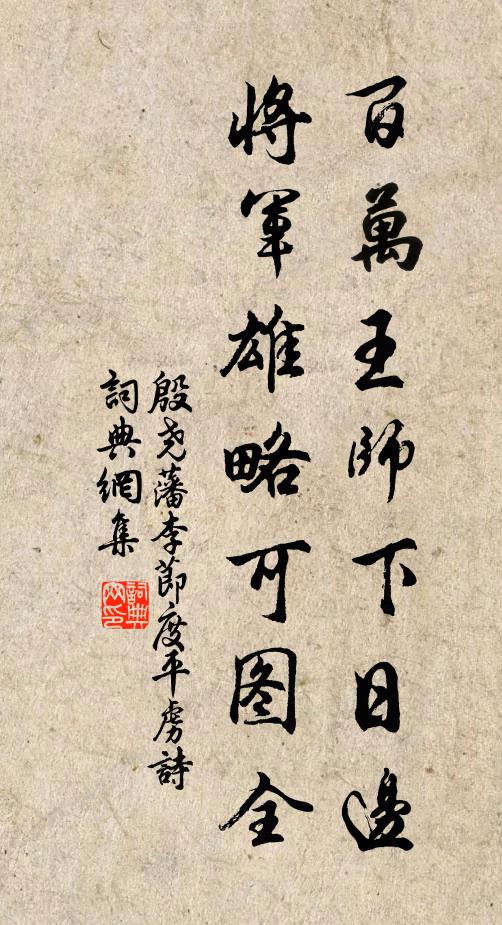 百萬王師下日邊
將軍雄略可图全
殷堯藩李節度平虜詩
詞典網集
詞典网印